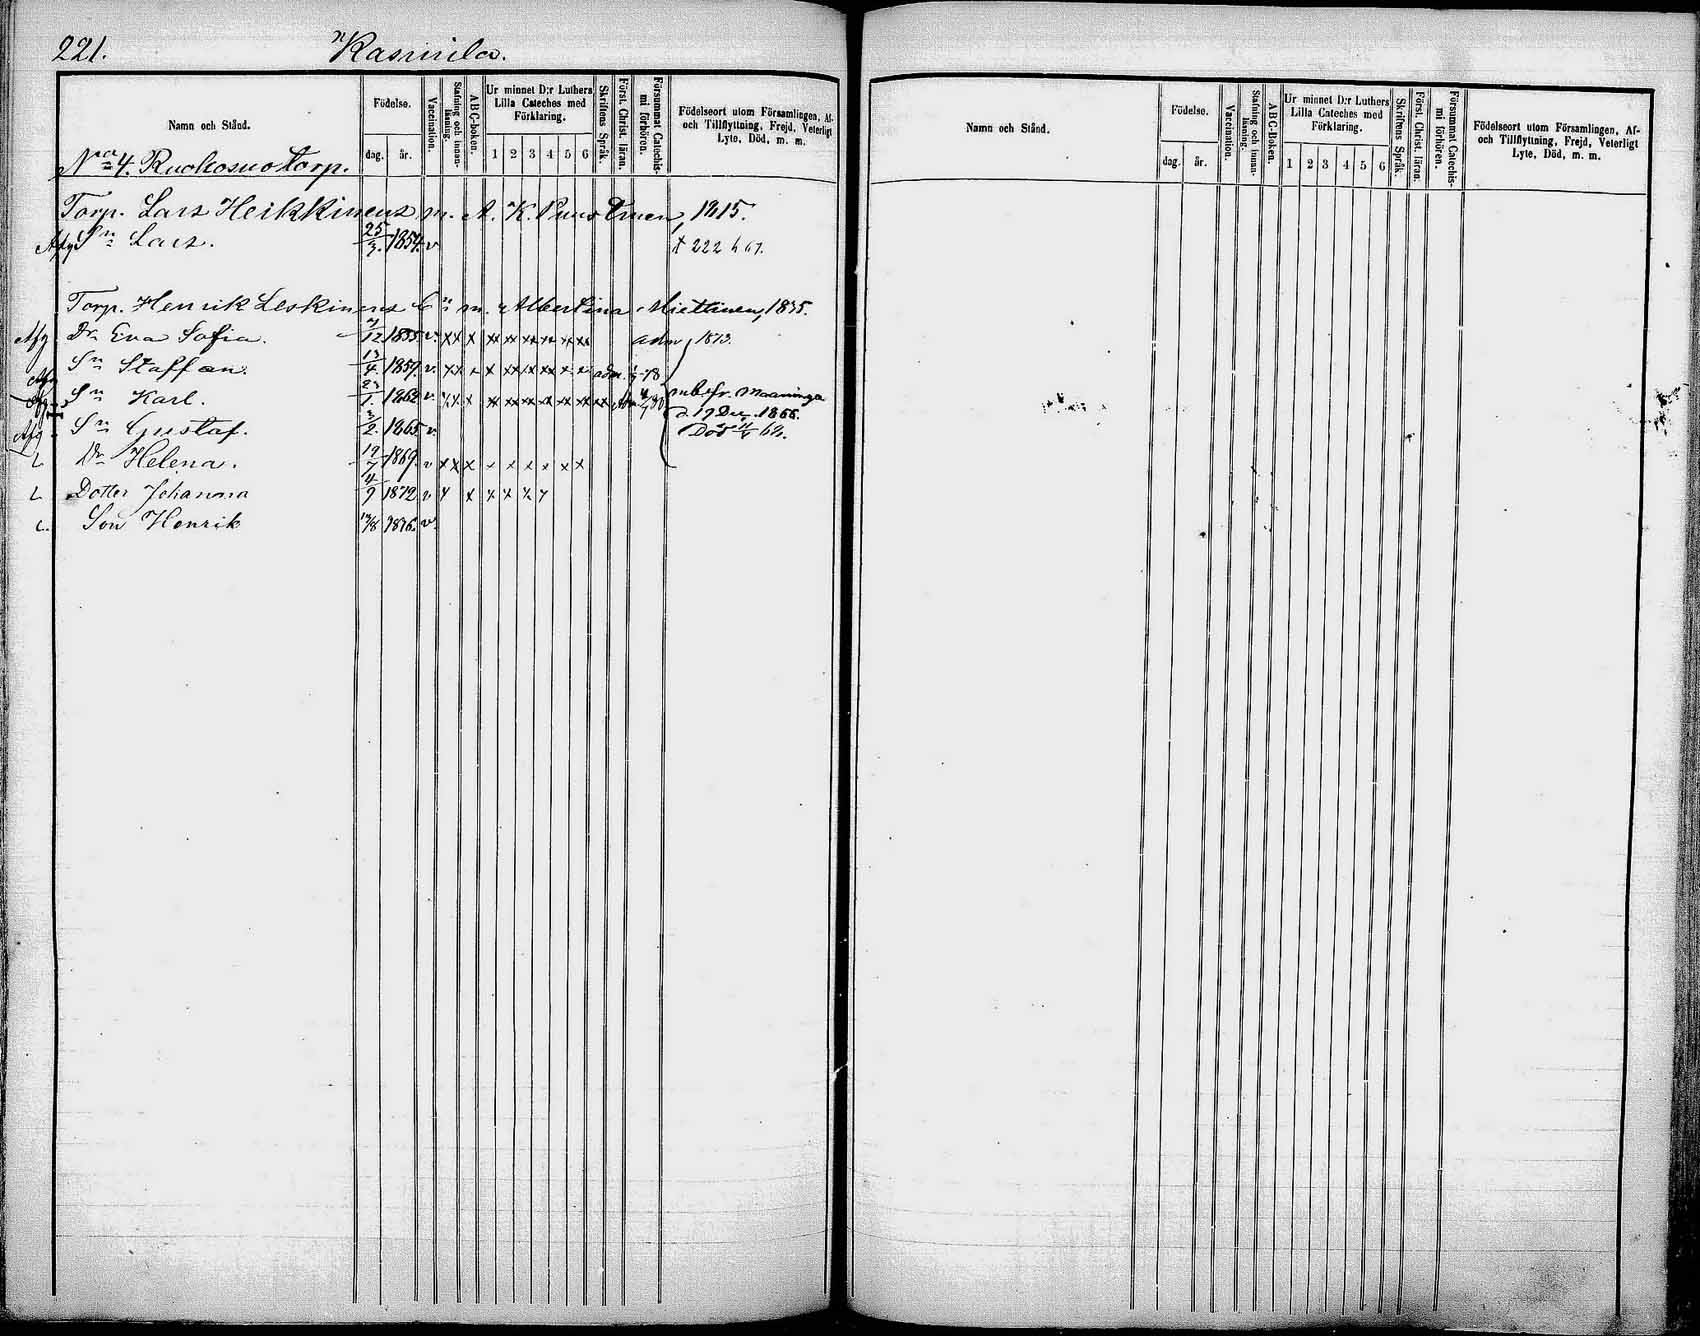 221. Kasurila.
Namn och Stånd.
Födelse.
dag. år.
Vaccination.
Stafning och innan-läsning.
ABC-boken.
Ur minnet D:r Luthers Lilla Cateches med Förklaring.
1 2 3 4 5 6
Skriftens Språk.
Först. Christ. läran.
Försummat Catechis-mi förhören.
Födelseort utom Församlingen, Af-
och Tillflyttning, Frejd, Veterligt
Lyte, Död, m. m.
No 4. Ruokosuo torp.
Torp. Lars Heikkinens m. A. K. Puustinen, 1815.
Afg Sn Lars. 25/3. 1854. v
Torp. Henrik Leskinens m. Albertina Miettinen, 1835.
Afg Dr Eva Sofia. 1855 v. x x x x x x x x x adm 1873.
Sn Staffan. 13/4. 1859. v. x x x x x x x x x adm. 78
Sn Karl. 23/1. 1862 v x x x x x x x x x x
mbefr. Maaninga
d 19 Dec. 1866.
Afg Sn Gustaf. 3/2. 1865 v. Död
Dr Helena. 19/7 1869. v x x x x x x x x x
Dotter Johanna 4/9 1872 v x x x x x x
Son Henrik 1876. v.
Namn och Stånd.
Födelse.
dag. år.
Vaccination.
Stafning och innan-läsning.
ABC-Boken.
Ur minnet D:r Luthers Lilla Cateches med Förklaring.
1 2 3 4 5 6
Skriftens Språk.
Först. Christ. läran.
Försummat Catechis-mi förhören.
Födelseort utom Församlingen, Af-
och Tillflyttning, Frejd, Veterligt
Lyte, Död, m. m.